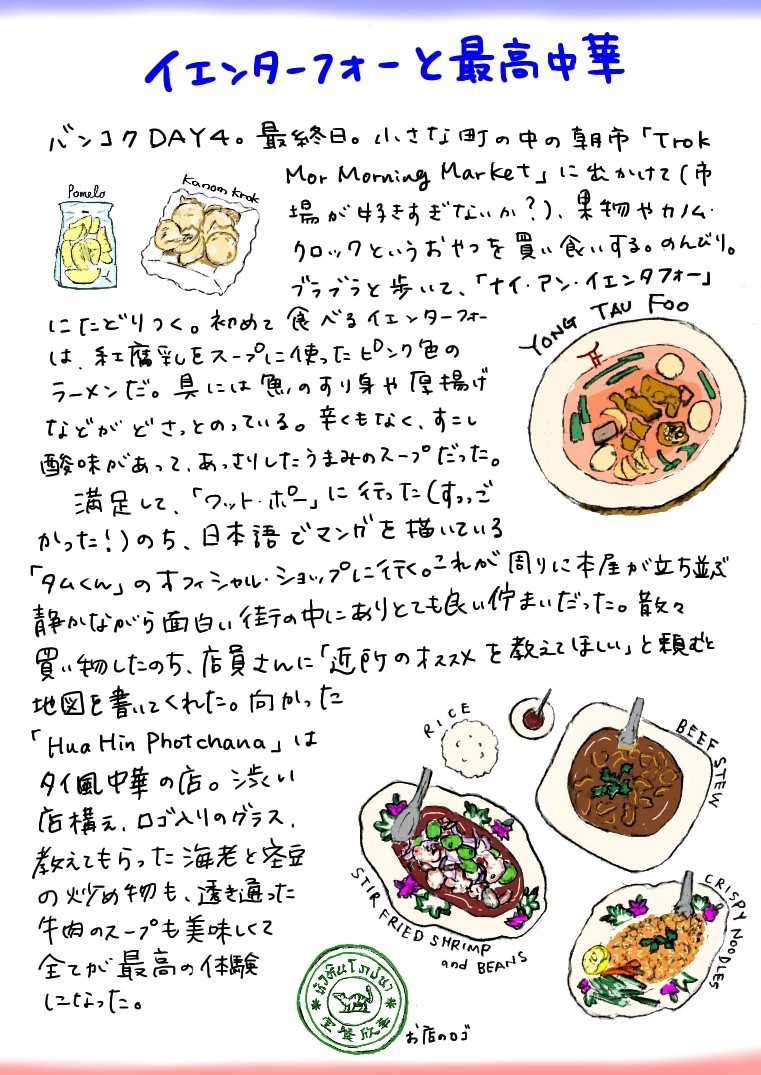 イエンターフォーと最高中華
バンコクDAY4。最終日。小さな町の中の朝市「Trok
Mor Morning Market」に出かけて(市
場が好きすぎないか?)、果物やカノム・
クロックというおやつを買い食いする。のんびり。
ブラブラと歩いて、「ナイ・アン・イエンタフォー」
Pomelo
Kanom Krok
にたどりつく。初めて食べるイエンターフォー
は、紅腐乳をスープに使ったピンク色の
ラーメンだ。具には魚のすり身や厚揚げ
などがどさっとのっている。辛くもなく、すこし
酸味があって、あっさりしたうまみのスープだった。
YONG TAU FOO
満足して、「ワット・ポー」に行った(すっっご
かった!)のち、日本語でマンガを描いている
「タムくん」のオフィシャル・ショップに行く。これが周りに本屋が立ち並ぶ
静かながら面白い街の中にありとても良い佇まいだった。散々
買い物したのち、店員さんに「近所のオススメを教えてほしい」と頼むと
地図を書いてくれた。向かった
「Hua Hin Photchana」は
タイ風中華の店。渋い
店構え、ロゴ入りのグラス、
教えてもらった海老と空豆
の炒め物も、透き通った
牛肉のスープも美味しくて
全てが最高の体験
になった。
RICE
BEEF STEW
STIR FRIED SHRIMP
and BEANS
CRISPY NOODLES
หัวหินโภชนา
お店のロゴ